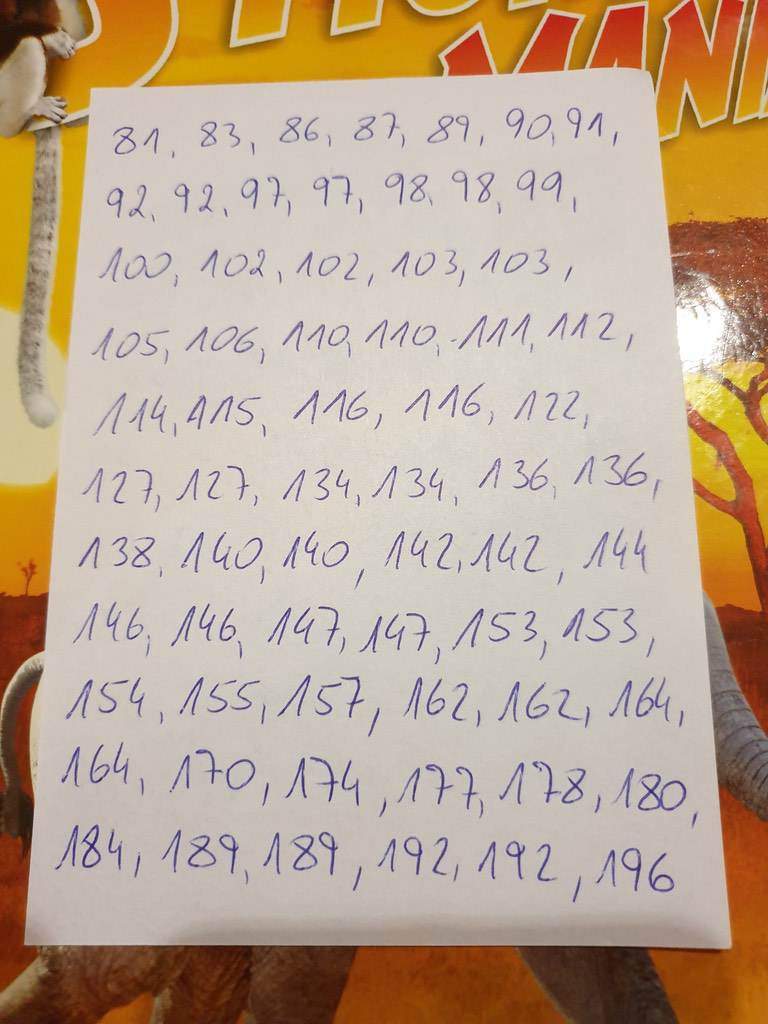 MANI
81, 83, 86, 87, 89, 90, 91,
92, 92, 97, 97, 98, 98, 99,
100, 102, 102, 103, 103,
105, 106, 110, 110, 111, 112,
114, 115, 116, 116, 122,
127, 127, 134, 134, 136, 136,
138, 140, 140, 142, 142, 144
146, 146, 147, 147, 153, 153,
154, 155, 157, 162, 162, 164,
164, 170, 174, 177, 178, 180,
184, 189, 189, 192, 192, 196